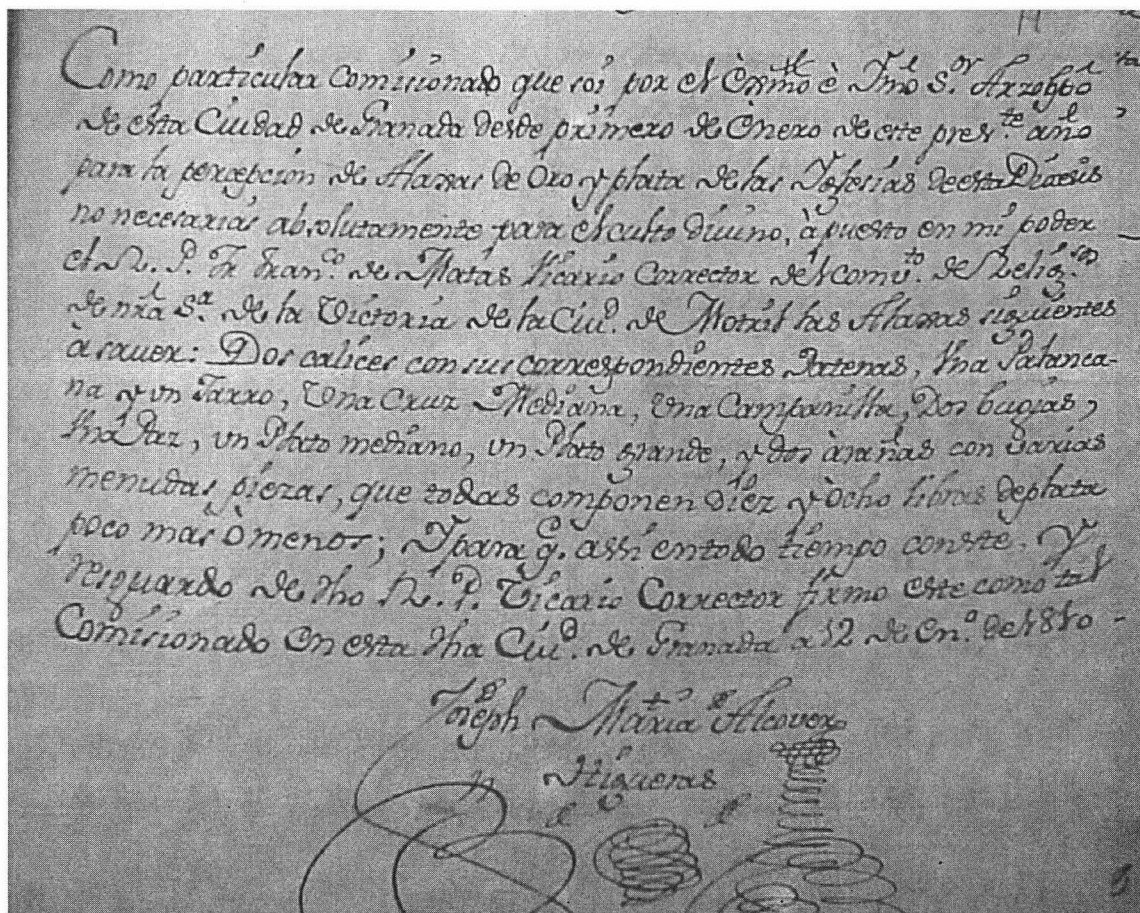 Como particular Comisionado que soi por el Exmo è Ymo S.or Arzobpo
de esta Ciudad de Granada desde primero de Enero de este pres.te año
para la percepción de Alaxas de Oro y plata de las Yglesias de esta Diócesis
no necesarias absolutamente para el culto divino, à puesto en mi poder
el R. P. Fr Fran.co de Matas Vicario Corrector del comv.to de Relig.sos
de nra S.a de la Victoria de la Ciu.d de Motril las Alaxas siguientes
à saver: Dos calices con sus correspondientes Patenas, Una Palanca-
na y un Jarro, Una Cruz Mediana, Una Campanilla, Dos bugias,
Una Paz, un Plato mediano, un Plato grande, y dos àrañas con varias
menudas piezas, que todas componen diez y òcho libras de plata
poco mas ò menos; Y para q. assi en todo tiempo conste, y
resguardo de dho R. P. Vicario Corrector firmo este como tal
Comisionado en esta dha Ciu.d de Granada a 12 de En.o de 1810-
Joseph Maria Alcover
Higueras